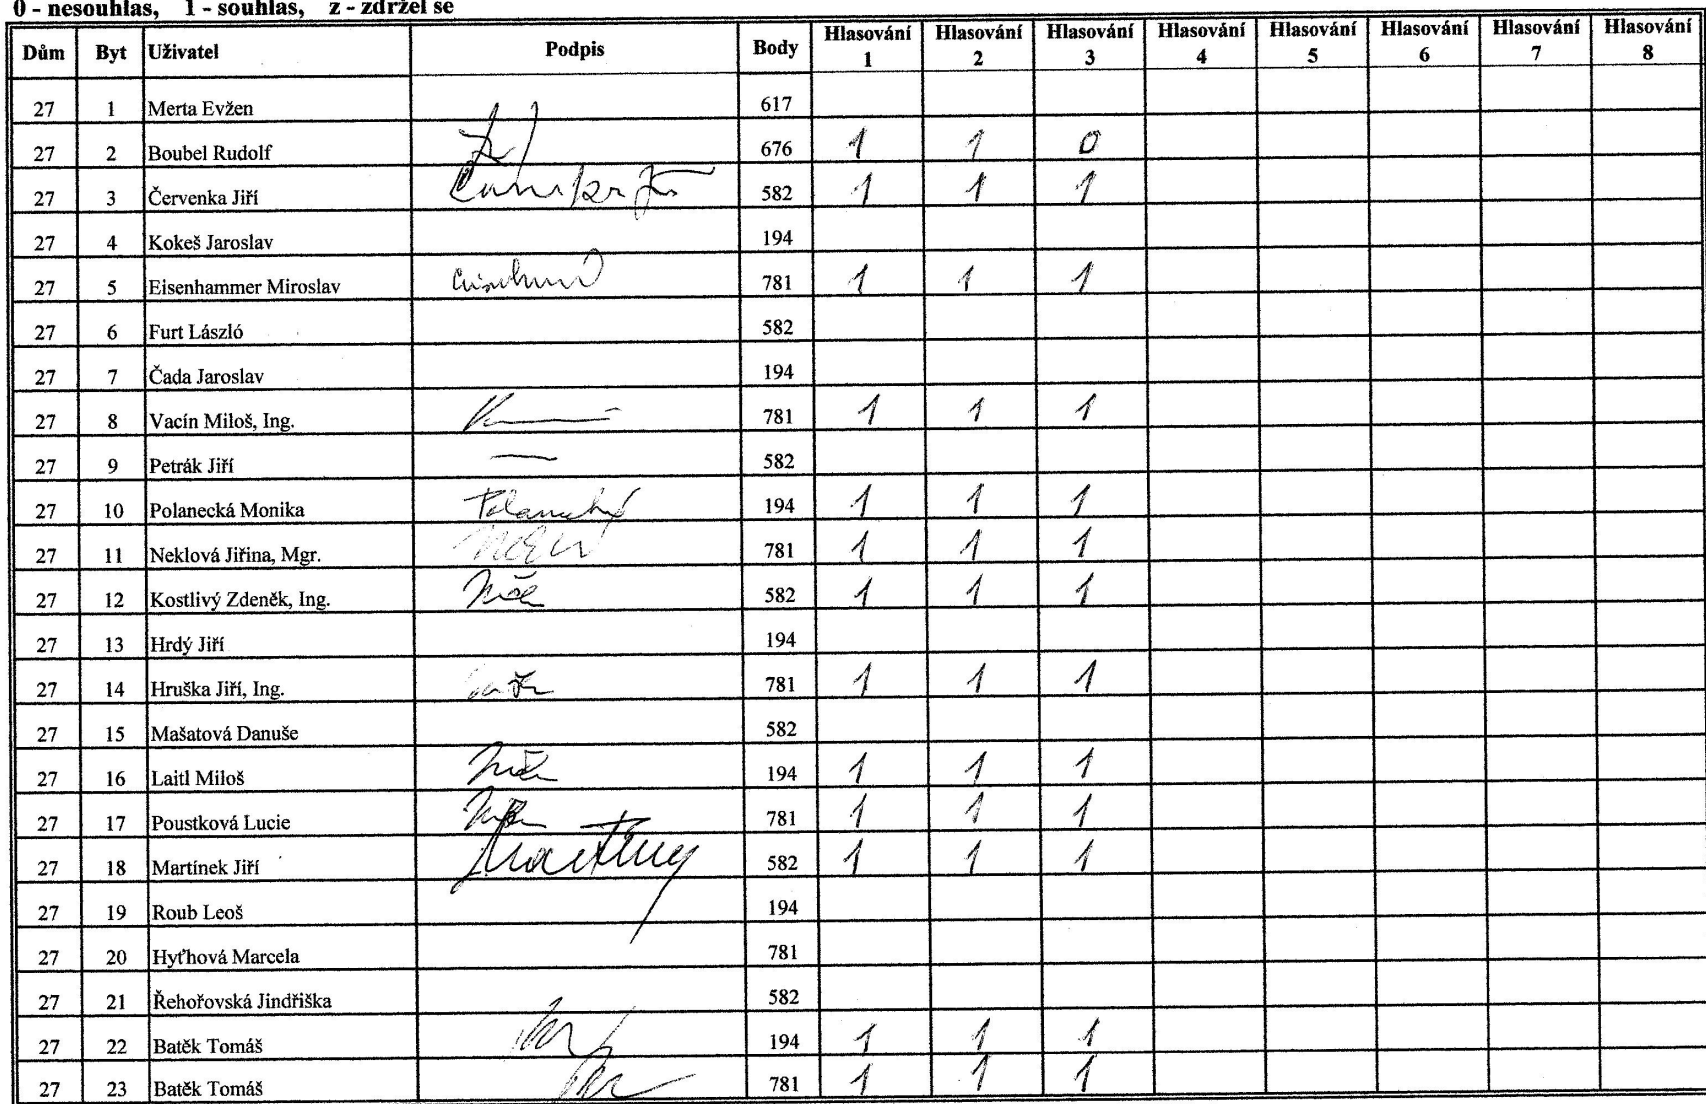 0 - nesouhlas, 1 - souhlas, z - zdržel se
Dům Byt Uživatel Podpis Body Hlasování 1 Hlasování 2 Hlasování 3 Hlasování 4 Hlasování 5 Hlasování 6 Hlasování 7 Hlasování 8
27 1 Merta Evžen 617
27 2 Boubel Rudolf 676 1 1 0
27 3 Červenka Jiří 582 1 1 1
27 4 Kokeš Jaroslav 194
27 5 Eisenhammer Miroslav 781 1 1 1
27 6 Furt László 582
27 7 Čada Jaroslav 194
27 8 Vacín Miloš, Ing. 781 1 1 1
27 9 Petrák Jiří — 582
27 10 Polanecká Monika 194 1 1 1
27 11 Neklová Jiřina, Mgr. 781 1 1 1
27 12 Kostlivý Zdeněk, Ing. 582 1 1 1
27 13 Hrdý Jiří 194
27 14 Hruška Jiří, Ing. 781 1 1 1
27 15 Mašatová Danuše 582
27 16 Laitl Miloš 194 1 1 1
27 17 Poustková Lucie 781 1 1 1
27 18 Martínek Jiří 582 1 1 1
27 19 Roub Leoš 194
27 20 Hyťhová Marcela 781
27 21 Řehořovská Jindřiška 582
27 22 Batěk Tomáš 194 1 1 1
27 23 Batěk Tomáš 781 1 1 1